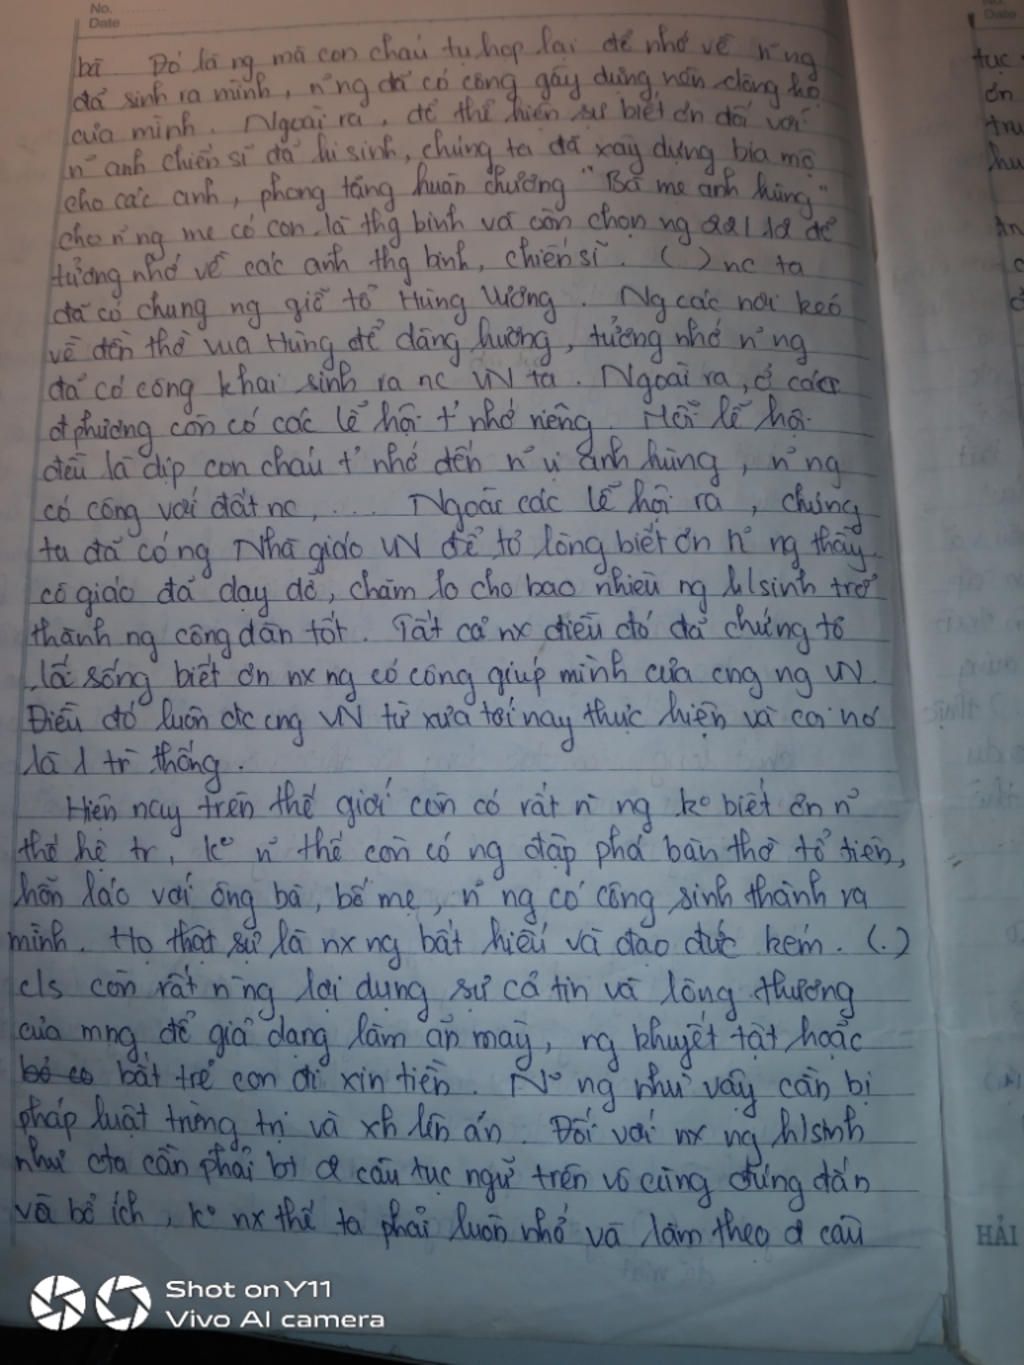 No.
Date
bà Đó là ng mà con cháu tụ họp lại để nhớ về n~ ng
đã sinh ra mình, n~ ng đã có công gây dựng nên dòng họ
của mình. Ngoài ra, để thể hiện sự biết ơn đối với
n~ anh chiến sĩ đã hi sinh, chúng ta đã xây dựng bia mộ
cho các anh, phong tặng huân chương "Bà mẹ anh hùng"
cho n~ ng mẹ có con là thg binh và còn chọn ng 22/12 để
tưởng nhớ về các anh thg binh, chiến sĩ. ( ) nc ta
đã có chung ng giỗ tổ Hùng Vương. Ng các nơi kéo
về đền thờ vua Hùng để dâng hương, tưởng nhớ n~ ng
đã có công khai sinh ra nc VN ta. Ngoài ra, ở các
đ phương còn có các lễ hội t' nhớ riêng. Mỗi lễ hội
đều là dịp con cháu t' nhớ đến n~ vị anh hùng, n~ ng
có công với đất nc, ... Ngoài các lễ hội ra, chúng
ta đã có ng Nhà giáo VN để tỏ lòng biết ơn n~ ng thầy
cô giáo đã dạy dỗ, chăm lo cho bao nhiêu ng h/sinh trở
thành ng công dân tốt. Tất cả nx điều đó đã chứng tỏ
lối sống biết ơn nx ng có công giúp mình của cng ng VN.
Điều đó luôn đc cng VN từ xưa tới nay thực hiện và coi nó
là 1 tr` thống.
Hiện nay trên thế giới còn có rất n` ng ko biết ơn n~
thế hệ tr', ko n~ thế còn có ng đập phá bàn thờ tổ tiên,
hỗn láo với ông bà, bố mẹ, n~ ng có công sinh thành ra
mình. Họ thật sự là nx ng bất hiếu và đạo đức kém. (.)
c/s còn rất n` ng lợi dụng sự cả tin và lòng thương
của mng để giả dạng làm ăn mày, ng khuyết tật hoặc
bắt trẻ con đi xin tiền. N~ ng như vậy cần bị
pháp luật trừng trị và xh lên án. Đối với nx ng h/sinh
như cta cần phải bt đc câu tục ngữ trên vô cùng đúng đắn
và bổ ích, ko nx thế ta phải luôn nhớ và làm theo đc câu
Date
tục
ơn
tru
hu
HẢI
Shot on Y11
Vivo AI camera